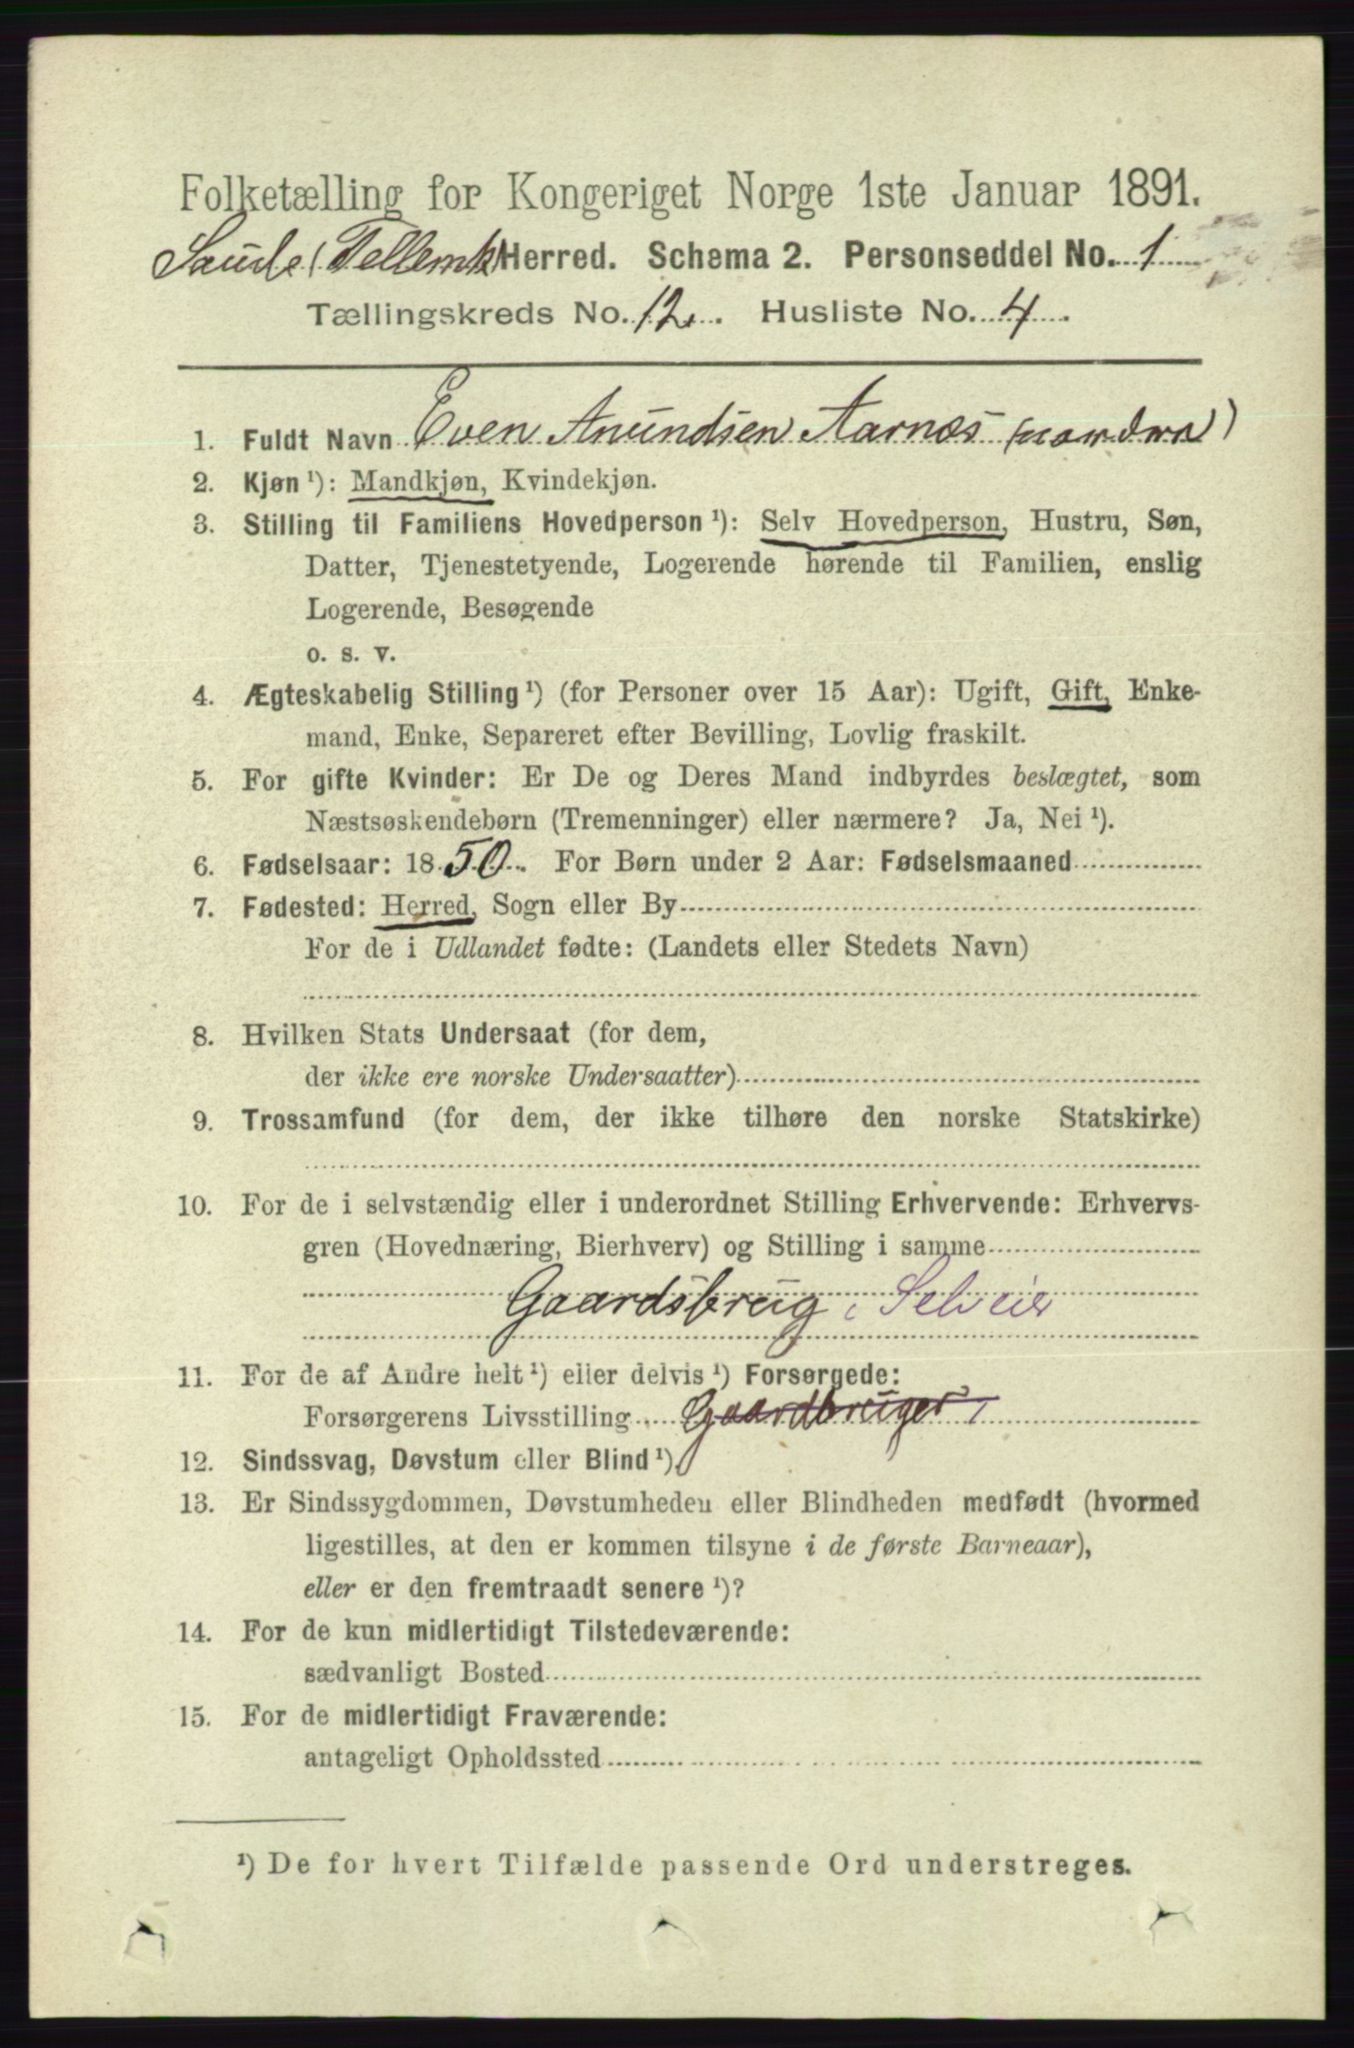 Folketælling for Kongeriget Norge 1ste Januar 1891.
Saude (Tellemk) Herred. Schema 2. Personseddel No. 1
Tællingskreds No. 12. Husliste No. 4.
1. Fuldt Navn Even Anundsen Aarnæs (nordre)
2. Kjøn ¹): Mandkjøn, Kvindekjøn.
3. Stilling til Familiens Hovedperson ¹): Selv Hovedperson, Hustru, Søn,
Datter, Tjenestetyende, Logerende hørende til Familien, enslig
Logerende, Besøgende
o. s. v.
4. Ægteskabelig Stilling ¹) (for Personer over 15 Aar): Ugift, Gift, Enke-
mand, Enke, Separeret efter Bevilling, Lovlig fraskilt.
5. For gifte Kvinder: Er De og Deres Mand indbyrdes beslægtet, som
Næstsøskendebørn (Tremenninger) eller nærmere? Ja, Nei ¹).
6. Fødselsaar: 1850. For Børn under 2 Aar: Fødselsmaaned
7. Fødested: Herred, Sogn eller By
For de i Udlandet fødte: (Landets eller Stedets Navn)
8. Hvilken Stats Undersaat (for dem,
der ikke ere norske Undersaatter)
9. Trossamfund (for dem, der ikke tilhøre den norske Statskirke)
10. For de i selvstændig eller i underordnet Stilling Erhvervende: Erhvervs-
gren (Hovednæring, Bierhverv) og Stilling i samme
Gaardsbrug, Selveier
11. For de af Andre helt ¹) eller delvis ¹) Forsørgede:
Forsørgerens Livsstilling Gaardbruger,
12. Sindssvag, Døvstum eller Blind ¹).
13. Er Sindssygdommen, Døvstumheden eller Blindheden medfødt (hvormed
ligestilles, at den er kommen tilsyne i de første Barneaar),
eller er den fremtraadt senere ¹)?
14. For de kun midlertidigt Tilstedeværende:
sædvanligt Bosted
15. For de midlertidigt Fraværende:
antageligt Opholdssted
¹) De for hvert Tilfælde passende Ord understreges.